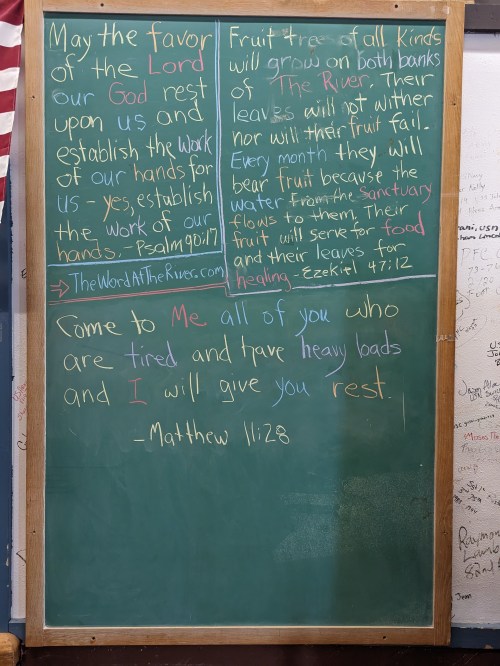 May the favor
of the Lord
our God rest
upon us and
establish the work
of our hands for
us - yes, establish
the work of our
hands. - Psalm 90:17
→ TheWordAtTheRiver.com
Fruit trees of all kinds
will grow on both banks
of The River. Their
leaves will not wither
nor will their fruit fail.
Every month they will
bear fruit because the
water from the sanctuary
flows to them. Their
fruit will serve for food
and their leaves for
healing - Ezekiel 47:12
Come to Me all of you who
are tired and have heavy loads
and I will give you rest.
- Matthew 11:28
Raymon
Lamb
82nd
Jean